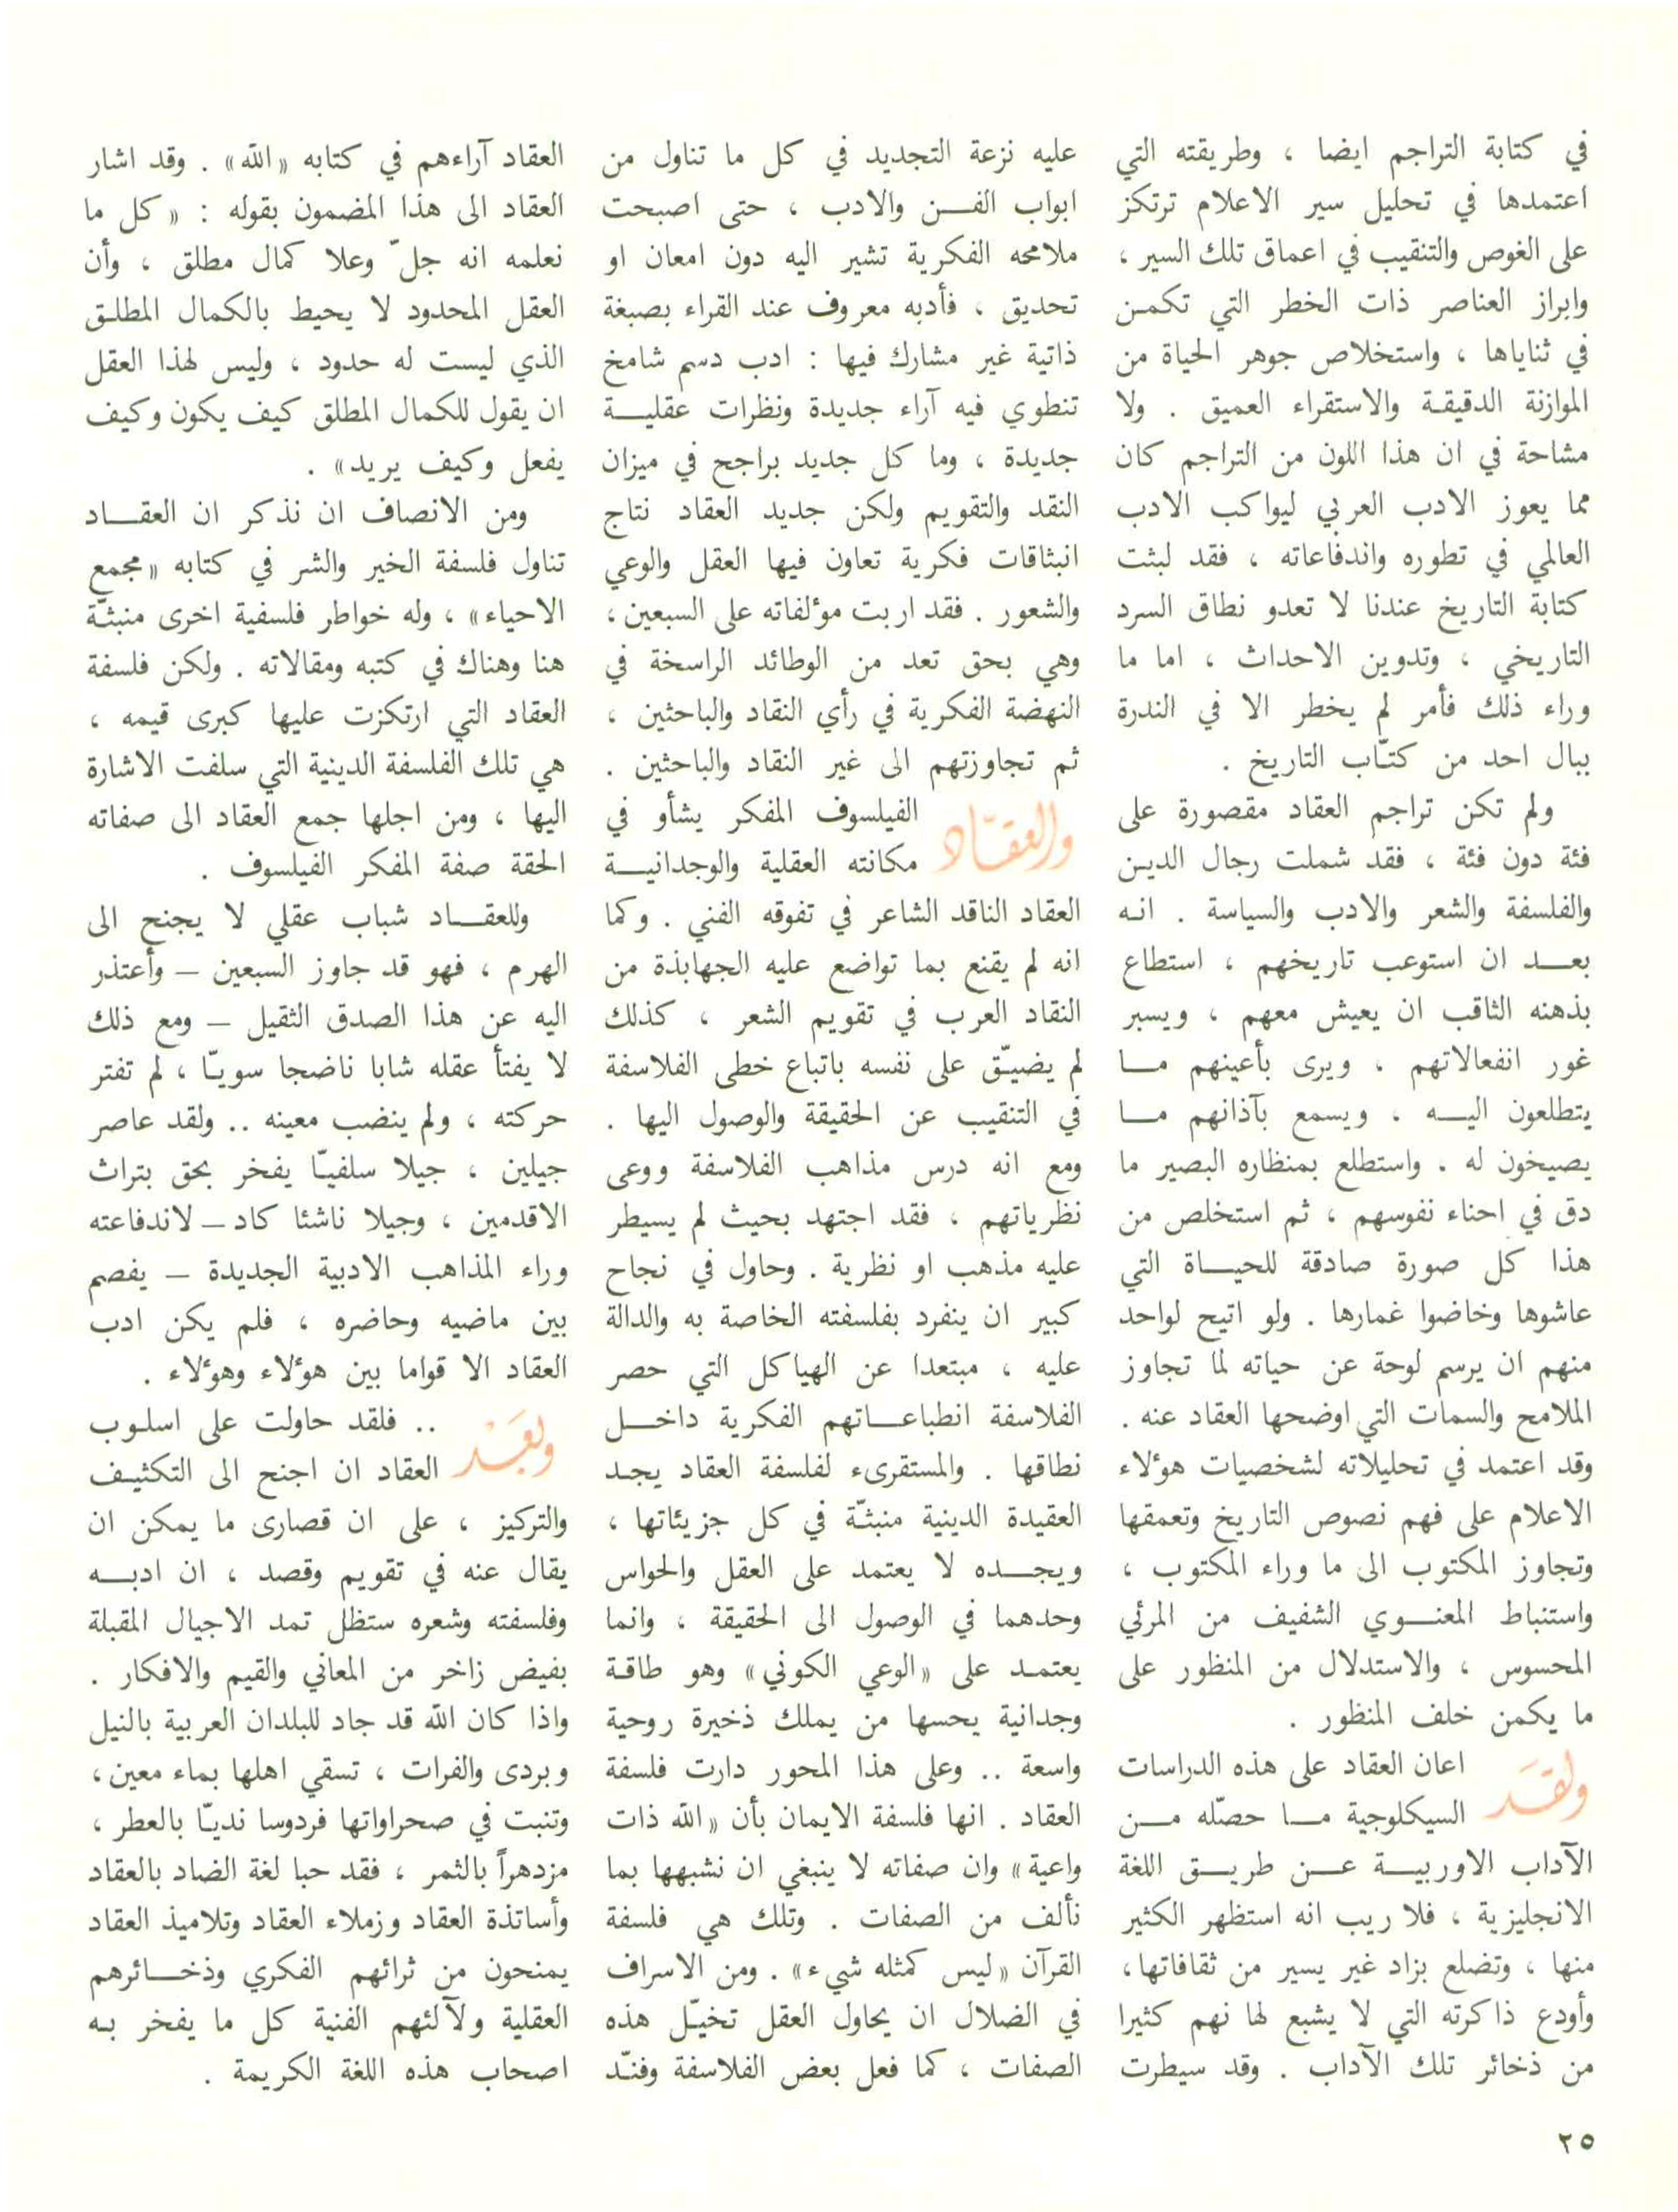 في كتابة التراجم ايضا ، وطريقته التي
اعتمدها في تحليل سير الاعلام ترتكز
على الغوص والتنقيب في اعماق تلك السير ،
وابراز العناصر ذات الخطر التي تكمن
في ثناياها ، واستخلاص جوهر الحياة من
الموازنة الدقيقة والاستقراء العميق . ولا
مشاحة في ان هذا اللون من التراجم كان
مما يعوز الادب العربي ليواكب الادب
العالمي في تطوره واندفاعاته ، فقد لبثت
كتابة التاريخ عندنا لا تعدو نطاق السرد
التاريخي ، وتدوين الاحداث ، اما ما
وراء ذلك فأمر لم يخطر الا في الندرة
ببال احد من كتّاب التاريخ .
ولم تكن تراجم العقاد مقصورة على
فئة دون فئة ، فقد شملت رجال الدين
والفلسفة والشعر والادب والسياسة . انه
بعد ان استوعب تاريخهم ، استطاع
بذهنه الثاقب ان يعيش معهم ، ويسبر
غور انفعالاتهم ، ويرى بأعينهم ما
يتطلعون اليه ، ويسمع بآذانهم ما
يصيخون له . واستطلع بمنظاره البصير ما
دق في احناء نفوسهم ، ثم استخلص من
هذا كل صورة صادقة للحياة التي
عاشوها وخاضوا غمارها . ولو اتيح لواحد
منهم ان يرسم لوحة عن حياته لما تجاوز
الملامح والسمات التي اوضحها العقاد عنه .
وقد اعتمد في تحليلاته لشخصيات هؤلاء
الاعلام على فهم نصوص التاريخ وتعمقها
وتجاوز المكتوب الى ما وراء المكتوب ،
واستنباط المعنوي الشفيف من المرئي
المحسوس ، والاستدلال من المنظور على
ما يكمن خلف المنظور .
ولقَد اعان العقاد على هذه الدراسات
السيكلوجية ما حصّله من
الآداب الاوربية عن طريق اللغة
الانجليزية ، فلا ريب انه استظهر الكثير
منها ، وتضلع بزاد غير يسير من ثقافاتها،
وأودع ذاكرته التي لا يشبع لها نهم كثيرا
من ذخائر تلك الآداب . وقد سيطرت
عليه نزعة التجديد في كل ما تناول من
ابواب الفن والادب ، حتى اصبحت
ملامحه الفكرية تشير اليه دون امعان او
تحديق ، فأدبه معروف عند القراء بصبغة
ذاتية غير مشارك فيها : ادب دسم شامخ
تنطوي فيه آراء جديدة ونظرات عقلية
جديدة ، وما كل جديد براجح في ميزان
النقد والتقويم ولكن جديد العقاد نتاج
انبثاقات فكرية تعاون فيها العقل والوعي
والشعور . فقد اربت مؤلفاته على السبعين،
وهي بحق تعد من الوطائد الراسخة في
النهضة الفكرية في رأي النقاد والباحثين ،
ثم تجاوزتهم الى غير النقاد والباحثين .
والعقّاد الفيلسوف المفكر يشأو في
مكانته العقلية والوجدانية
العقاد الناقد الشاعر في تفوقه الفني . وكما
انه لم يقنع بما تواضع عليه الجهابذة من
النقاد العرب في تقويم الشعر ، كذلك
لم يضيّق على نفسه باتباع خطى الفلاسفة
في التنقيب عن الحقيقة والوصول اليها .
ومع انه درس مذاهب الفلاسفة ووعى
نظرياتهم ، فقد اجتهد بحيث لم يسيطر
عليه مذهب او نظرية . وحاول في نجاح
كبير ان ينفرد بفلسفته الخاصة به والدالة
عليه ، مبتعدا عن الهياكل التي حصر
الفلاسفة انطباعاتهم الفكرية داخل
نطاقها . والمستقرىء لفلسفة العقاد يجد
العقيدة الدينية منبثّة في كل جزيئاتها ،
ويجده لا يعتمد على العقل والحواس
وحدهما في الوصول الى الحقيقة ، وانما
يعتمد على «الوعي الكوني» وهو طاقة
وجدانية يحسها من يملك ذخيرة روحية
واسعة .. وعلى هذا المحور دارت فلسفة
العقاد . انها فلسفة الايمان بأن «الله ذات
واعية» وان صفاته لا ينبغي ان نشبهها بما
نألف من الصفات . وتلك هي فلسفة
القرآن «ليس كمثله شيء» . ومن الاسراف
في الضلال ان يحاول العقل تخيّل هذه
الصفات ، كما فعل بعض الفلاسفة وفنّد
العقاد آراءهم في كتابه «الله» . وقد اشار
العقاد الى هذا المضمون بقوله : «كل ما
نعلمه انه جلّ وعلا كمال مطلق ، وأن
العقل المحدود لا يحيط بالكمال المطلق
الذي ليست له حدود ، وليس لهذا العقل
ان يقول للكمال المطلق كيف يكون وكيف
يفعل وكيف يريد» .
ومن الانصاف ان نذكر ان العقاد
تناول فلسفة الخير والشر في كتابه «مجمع
الاحياء» ، وله خواطر فلسفية اخرى منبثّة
هنا وهناك في كتبه ومقالاته . ولكن فلسفة
العقاد التي ارتكزت عليها كبرى قيمه ،
هي تلك الفلسفة الدينية التي سلفت الاشارة
اليها ، ومن اجلها جمع العقاد الى صفاته
الحقة صفة المفكر الفيلسوف .
وللعقاد شباب عقلي لا يجنح الى
الهرم ، فهو قد جاوز السبعين – وأعتذر
اليه عن هذا الصدق الثقيل – ومع ذلك
لا يفتأ عقله شابا ناضجا سويّا ، لم تفتر
حركته ، ولم ينضب معينه .. ولقد عاصر
جيلين ، جيلا سلفيّا يفخر بحق بتراث
الاقدمين ، وجيلا ناشئا كاد – لاندفاعته
وراء المذاهب الادبية الجديدة – يفصم
بين ماضيه وحاضره ، فلم يكن ادب
العقاد الا قواما بين هؤلاء وهؤلاء .
وبَعَدْ .. فلقد حاولت على اسلوب
العقاد ان اجنح الى التكثيف
والتركيز ، على ان قصارى ما يمكن ان
يقال عنه في تقويم وقصد ، ان ادبه
وفلسفته وشعره ستظل تمد الاجيال المقبلة
بفيض زاخر من المعاني والقيم والافكار .
واذا كان الله قد جاد للبلدان العربية بالنيل
وبردى والفرات ، تسقي اهلها بماء معين،
وتنبت في صحراواتها فردوسا نديّا بالعطر ،
مزدهراً بالثمر ، فقد حبا لغة الضاد بالعقاد
وأساتذة العقاد وزملاء العقاد وتلاميذ العقاد
يمنحون من ثرائهم الفكري وذخائرهم
العقلية ولآلئهم الفنية كل ما يفخر به
اصحاب هذه اللغة الكريمة .
٢٥